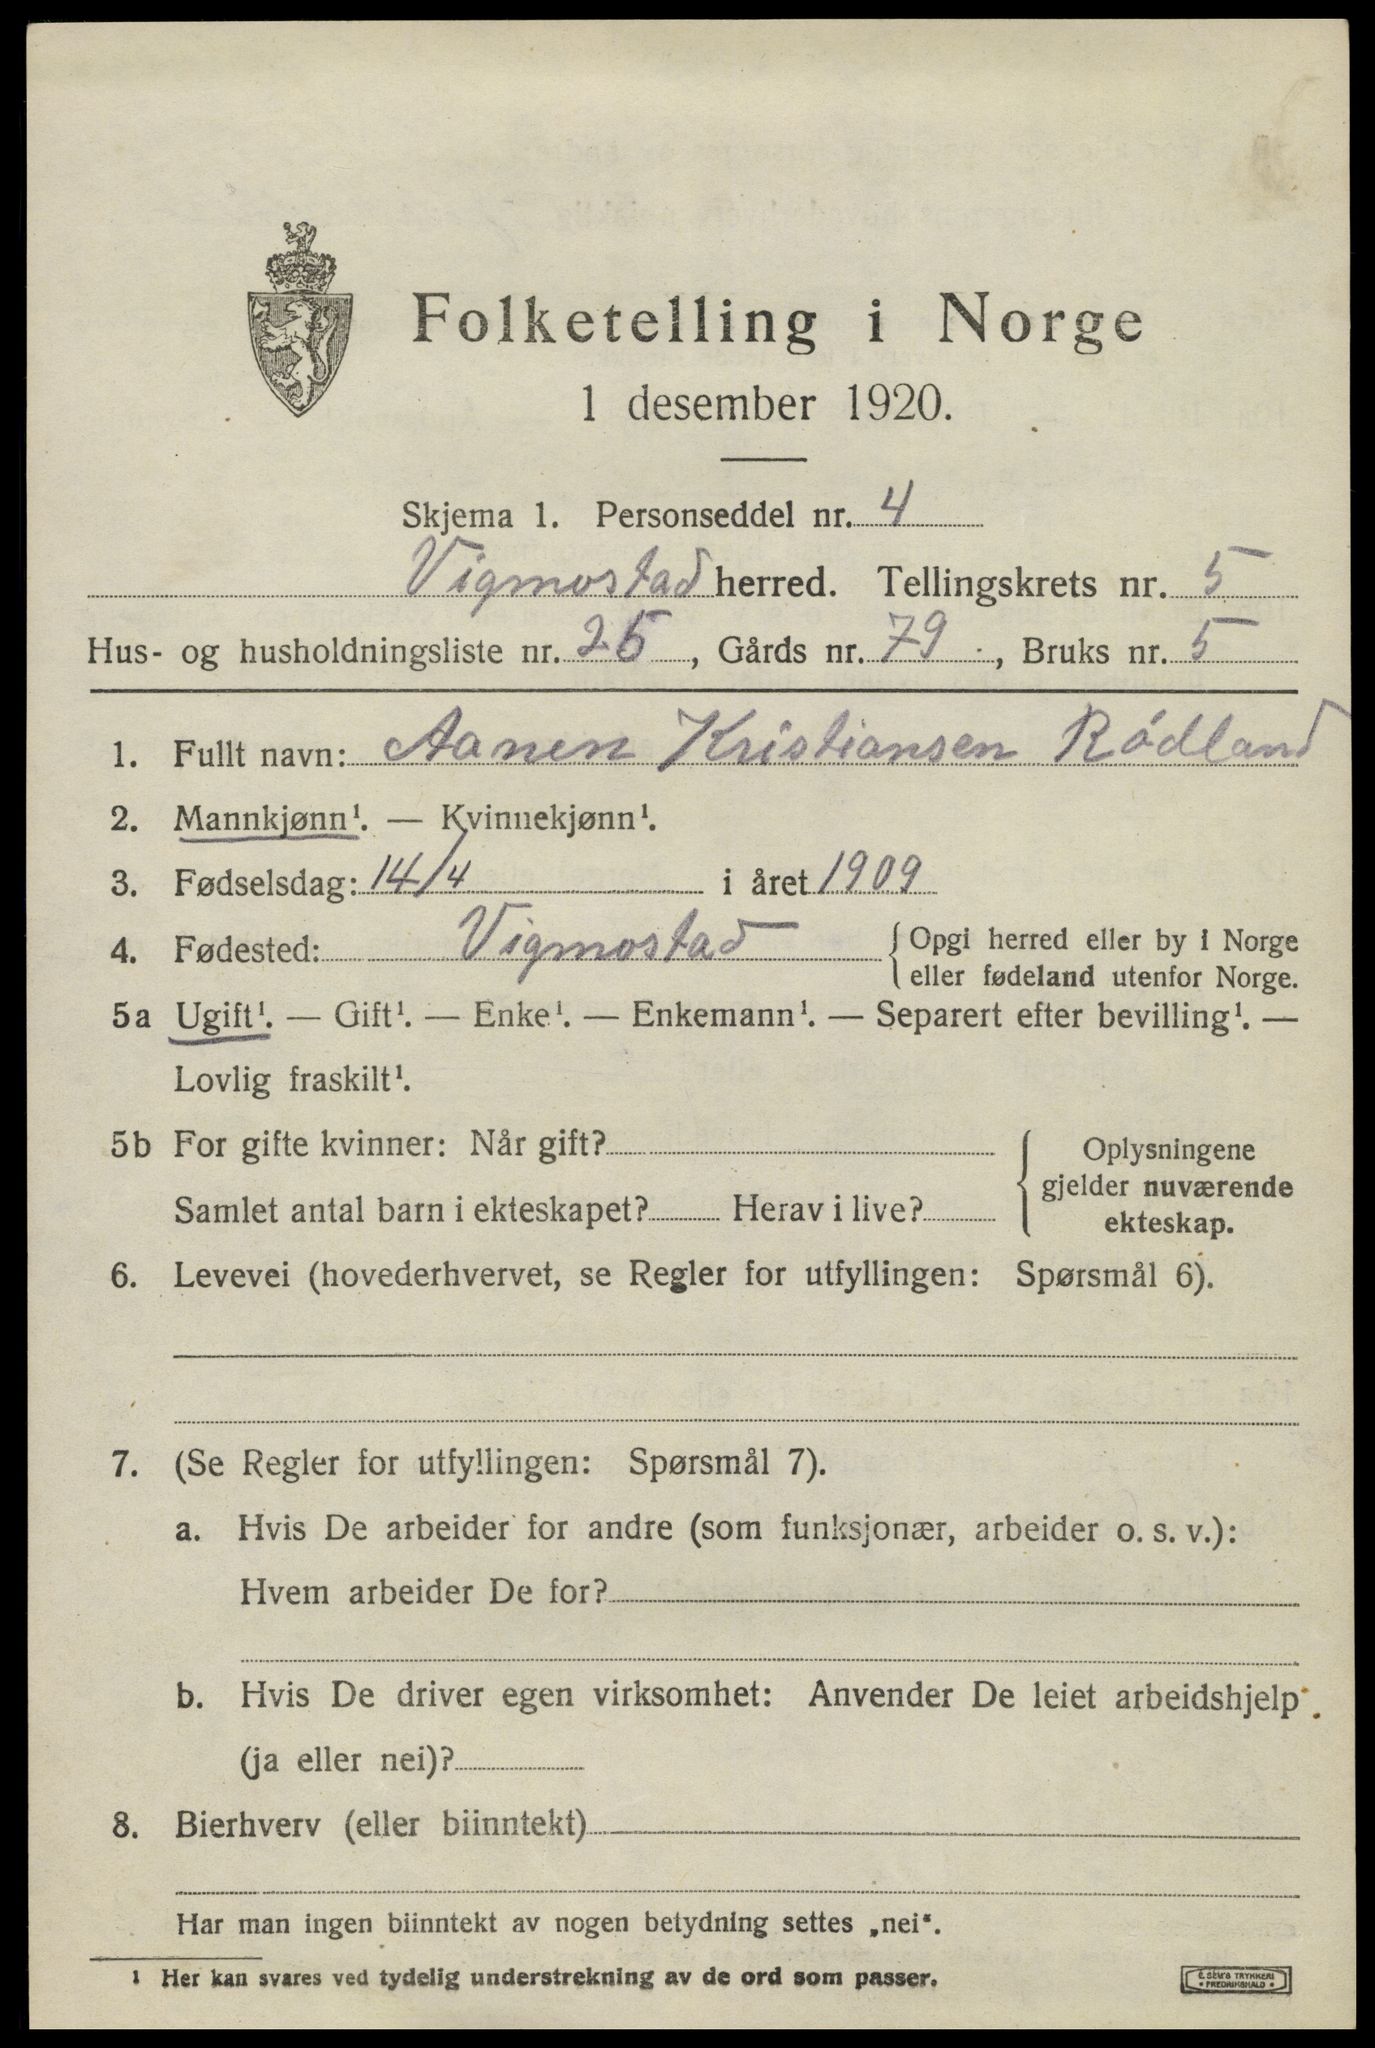 Folketelling i Norge
1 desember 1920.
Skjema 1. Personseddel nr. 4
Vigmostad herred. Tellingskrets nr. 5
Hus- og husholdningsliste nr. 25, Gårds nr. 79, Bruks nr. 5
1. Fullt navn: Aanen Kristiansen Ródland
2. Mannkjønn¹. — Kvinnekjønn¹.
3. Fødselsdag: 14/4 i året 1909
4. Fødested: Vigmostad { Opgi herred eller by i Norge
eller fødeland utenfor Norge.
5a Ugift¹. — Gift¹. — Enke¹. — Enkemann¹. — Separert efter bevilling¹. —
Lovlig fraskilt¹.
5b For gifte kvinner: Når gift?
Samlet antal barn i ekteskapet? Herav i live?
{ Oplysningene
gjelder nuværende
ekteskap.
6. Levevei (hovederhvervet, se Regler for utfyllingen: Spørsmål 6).
7. (Se Regler for utfyllingen: Spørsmål 7).
a. Hvis De arbeider for andre (som funksjonær, arbeider o. s. v.):
Hvem arbeider De for?
b. Hvis De driver egen virksomhet: Anvender De leiet arbeidshjelp
(ja eller nei)?
8. Bierhverv (eller biinntekt)
Har man ingen biinntekt av nogen betydning settes „nei“.
1 Her kan svares ved tydelig understrekning av de ord som passer.
E. SEM'S TRYKKERI
• FREDRIKSHALD •